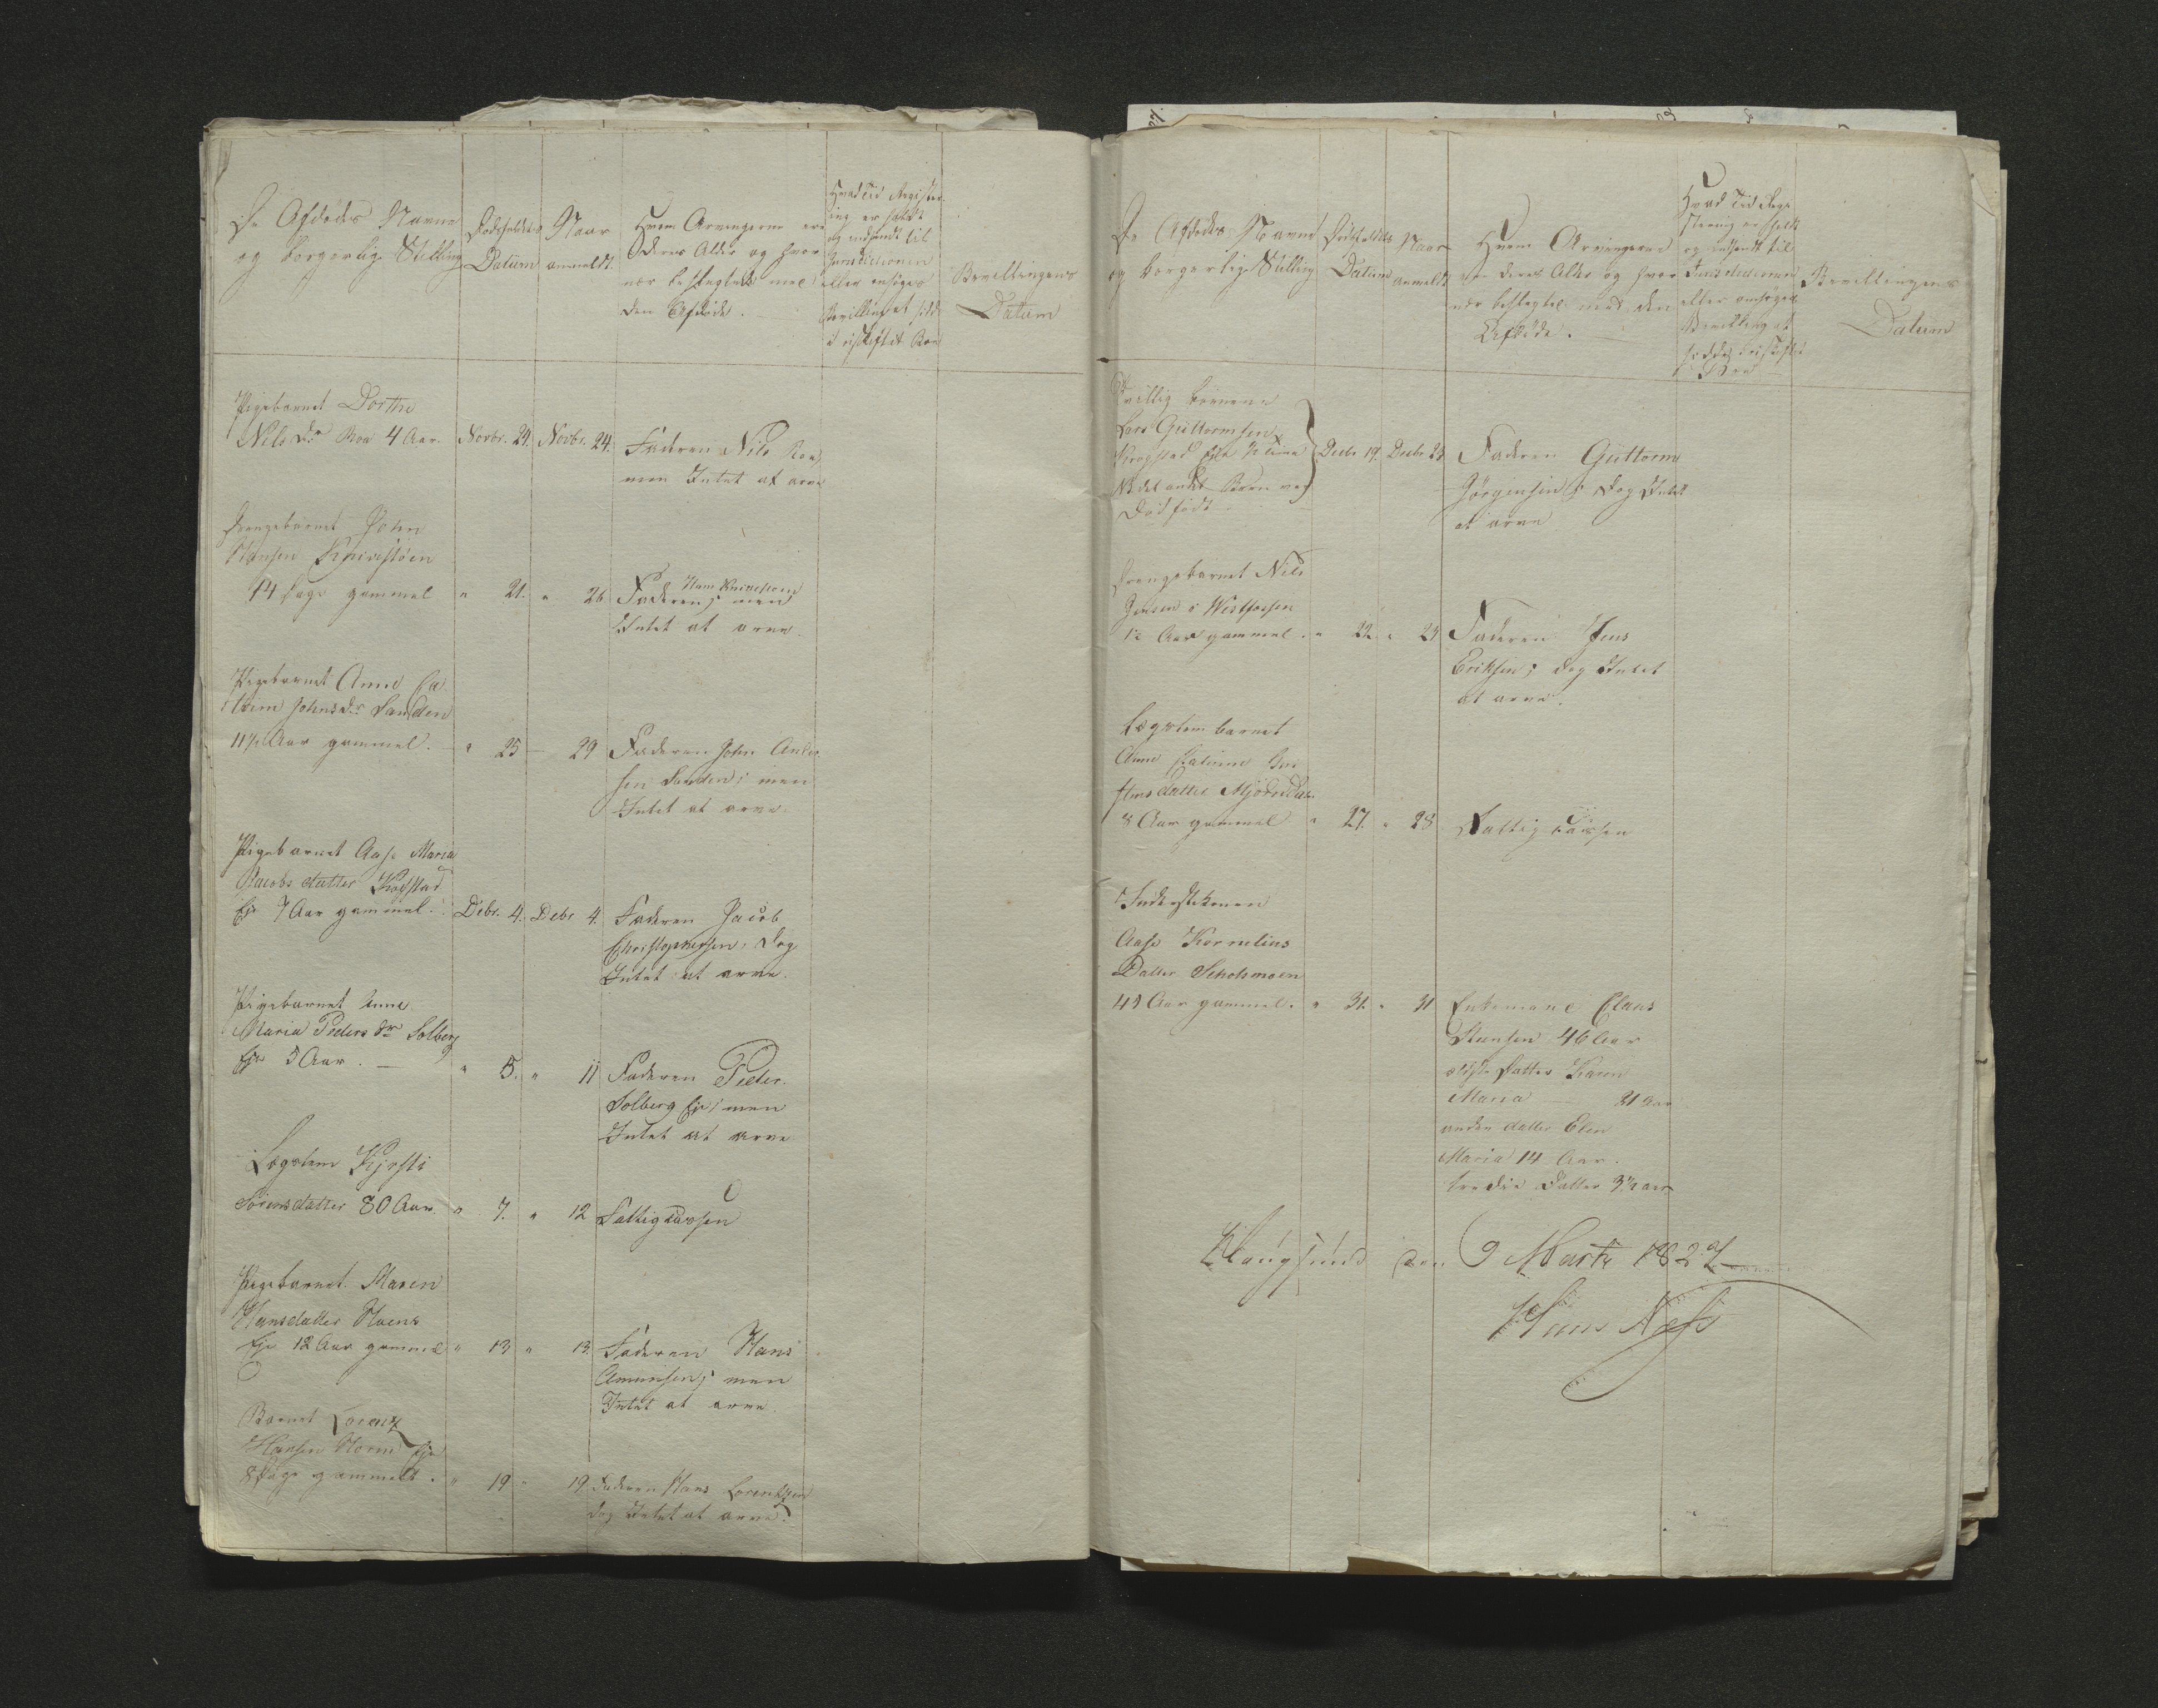 De Afdødes Navne
og borgerlige Stilling
Dødsfaldets
Datum
Naar
anmeldt.
Hvem Arvingerne ere
deres Alder og hvor
nær beslægtede med
den Afdøde.
Hvad Tid Registe-
ring er holdt
og indsendt til
Jurisdictionen
eller ansøges
Bevilling at sidde
i uskiftet Boe
Bevillingens
Datum
Pigebarnet Dorthe
Nils Dr Boe 4 Aar. Novbr. 24. Novbr. 24.
Faderen Nils Boe,
men Intet at arve
Drengebarnet John
Hansen Knivestøen
14 Dage gammel " 21. " 26
Hans Knivestøen
Faderen; men
Intet at arve.
Pigebarnet Anne Ca
trine Johns Dr Sanden
11½ Aar gammel. " 25 — 29
Faderen John Ander
sen Sanden; men
Intet at arve.
Pigebarnet Aase Maria
Jacobs datter Krogstad
Eje 7 Aar gammel. Debr. 4. Debr 4.
Faderen Jacob
Christophersen; dog
Intet at arve.
Pigebarnet Anne
Maria Peders Dr Solberg
Eje 5 Aar. — " 5. " 11
Faderen Peder
Solberg Eje; men
Intet at arve
Lægdslem Kjersti
Sørensdatter 80 Aar. " 7. " 12 Fattigkassen
Pigebarnet Maren
Hansdatter Hoens
Eje 12 Aar gammel " 13 " 13.
Faderen Hans
Amunsen; men
Intet at arve
Barnet Lorenz
Hansen Horne Eje
8 Dage gammelt. " 19 " 19
Faderen Hans Lorentzen
dog Intet at arve.
De Afdødes Navne
og borgerlige Stilling
Dødsfaldets
Datum
Naar
anmeldt
Hvem Arvingerne
ere deres Alder og hvor
nær beslægtede med den
Afdøde.
Hvad Tid Regi-
stering er holdt
og indsendt til
Jurisdictionen
eller ansøges
Bevilling at
sidde i uskiftet
Boe
Bevillingens
Datum
Tvilling børnene
Lars Guttormsen
Krogstad Eje ½ Time
NB det andet Barn var
Dødfødt
Debr 19. Debr 23
Faderen Guttorm
Jørgensen; dog Intet
at arve
Drengebarnet Nils
Jensen i Westfossen
12 Aar gammel. " 22. " 23
Faderen Jens
Eriksen; dog Intet
at arve.
Lægdslem barnet
Anne Catrine
datter
8 Aar gammel " 27. " 28 Fattig cassen
Inderstekonen
Aase Kornelius
Datter
49 Aar gammel. " 31. " 31
Enkemand Claus
Hansen 46 Aar
ældste Datter Karen
Maria — 21 Aar
anden datter Elen
Maria 14 Aar.
tredie Datter 3½ aar
Haugsund den 9 Marts 1827
Hans Næss